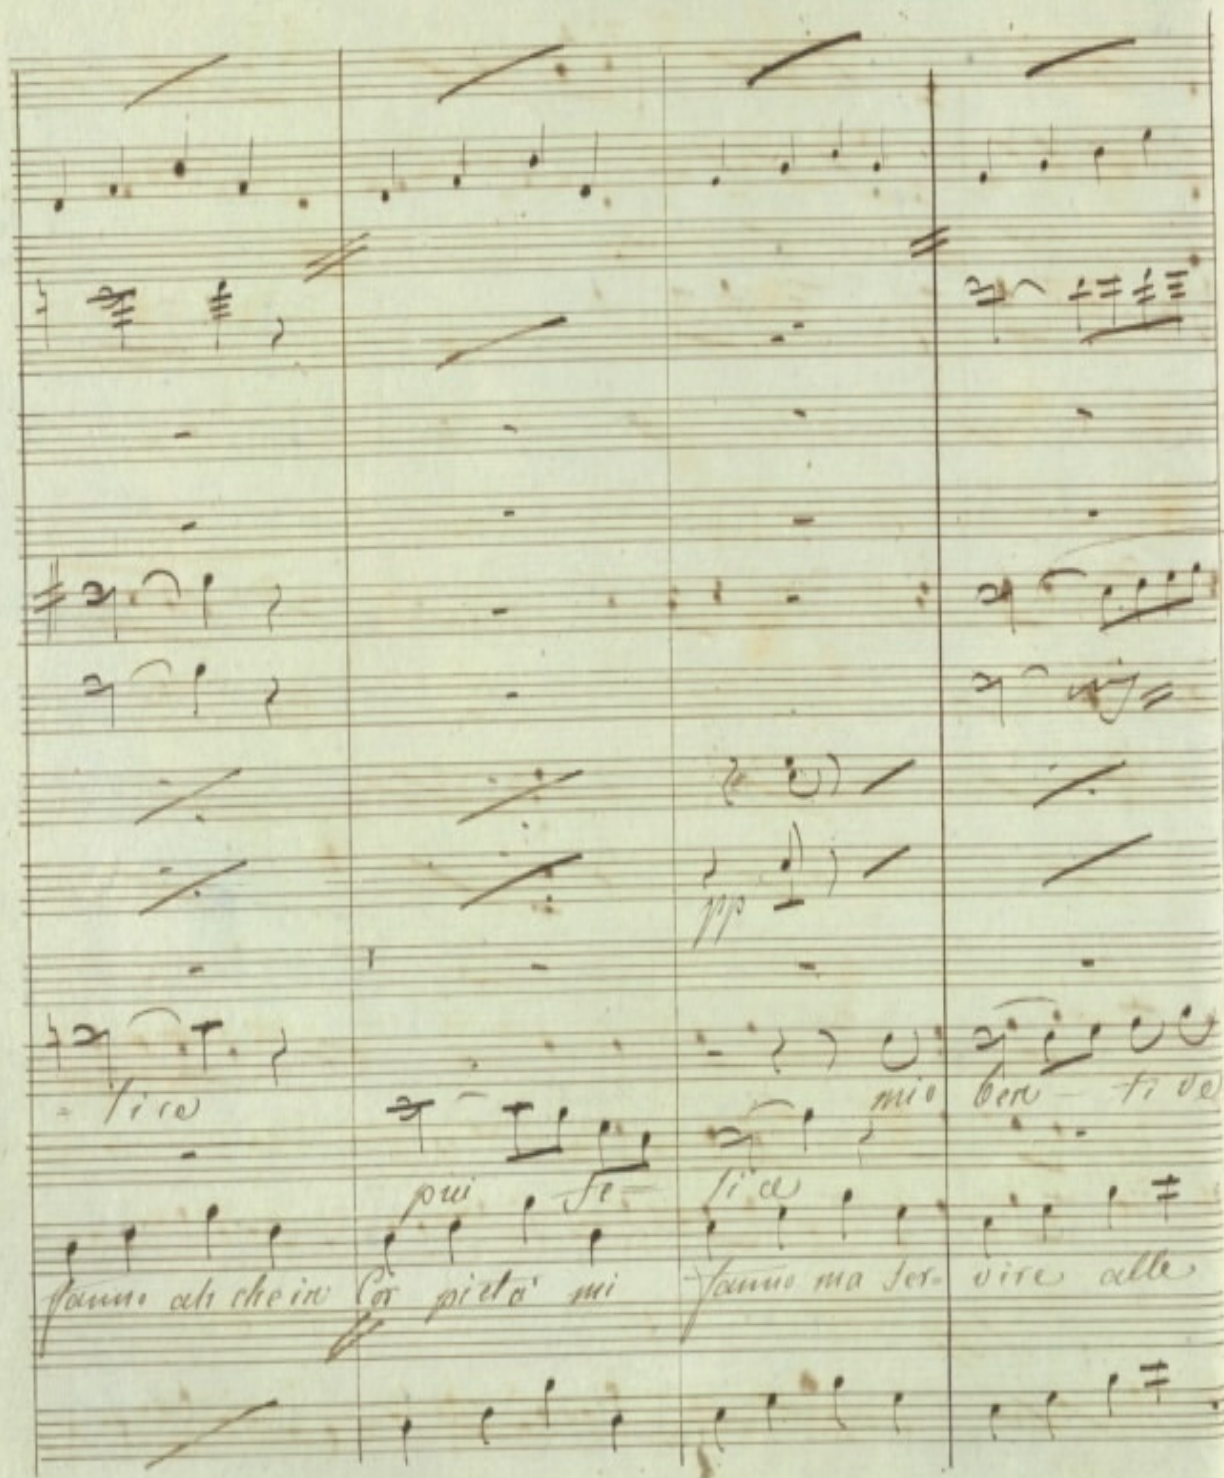 pp
- lice
mio ben - ti ve
piu fe - lice
fanno ah che in Cor pietà mi fanno ma ser- vire alle